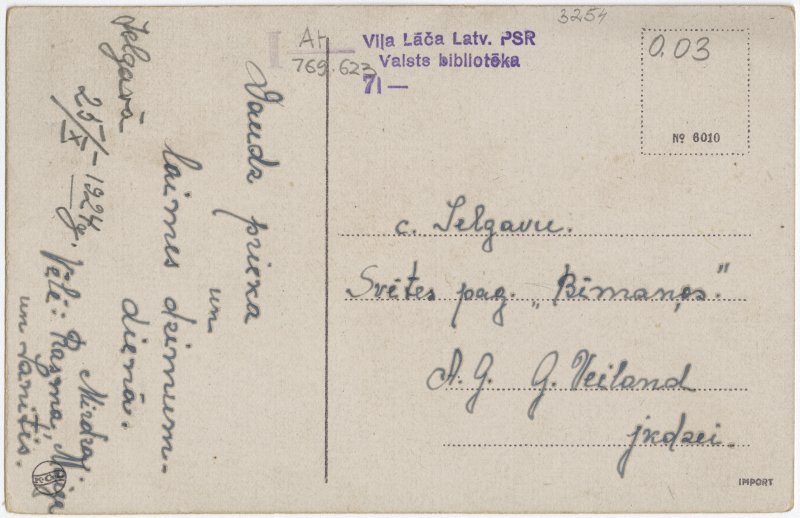 3254
Ar
769.623
Viļa Lāča Latv. PSR
Valsts bibliotēka
71 —
0.03
№ 6010
Jelgavā
25/IX – 1924 g.
Daudz prieka
un
laimes dzimum-
dienā.
Vēlē: Rasma, Mirdza,
un Janītis.
c. Jelgavu.
Svētes pag. „Bīmaņos."
A. G. G. Veiland
jkdzei.
IMPORT